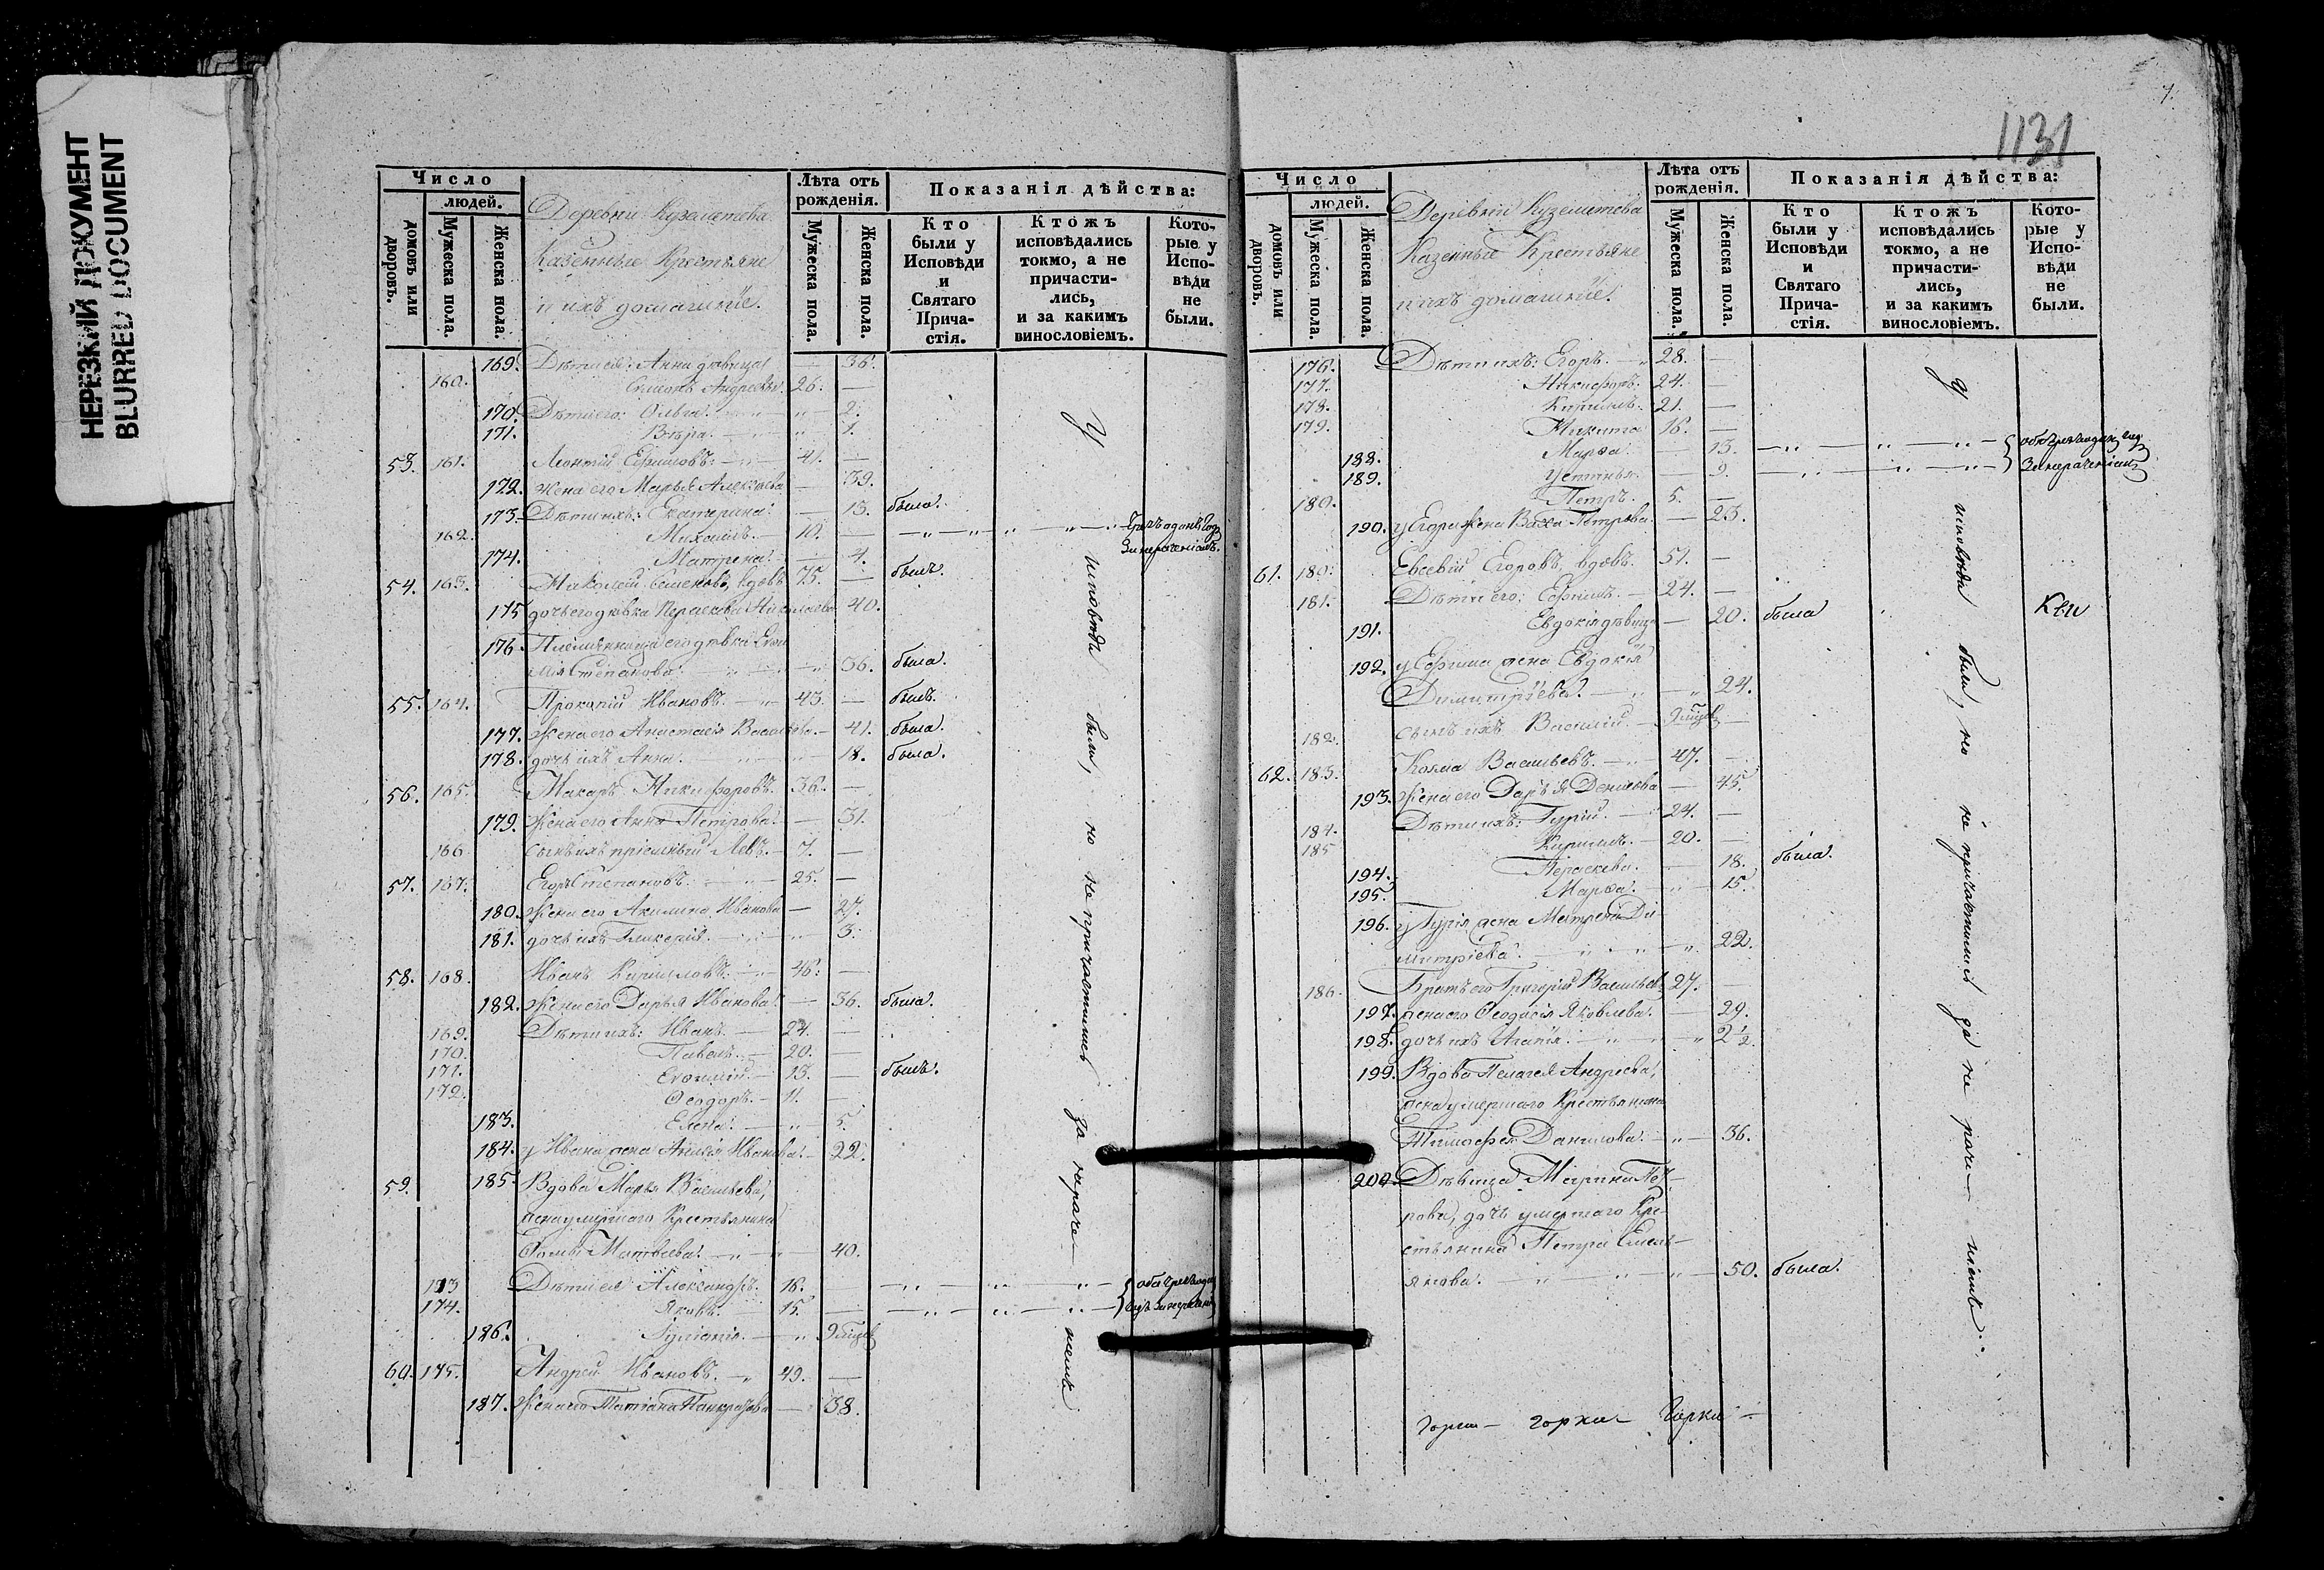 НЕРЕЗКИЙ ДОКУМЕНТ
BLURRED DOCUMENT
Число
людей.
домовъ или дворовъ.
Мужеска пола.
Женска пола.
Деревни
Казенные Крестьяне
и ихъ домашнїе.
Лѣта отъ рожденія.
Мужеска пола.
Женска пола.
Показанія дѣйства:
Кто были у Исповѣди и Святаго Прича-стія.
Ктожъ исповѣдались токмо, а не причасти-лись, и за какимъ винословіемъ.
Кото-рые у Испо-вѣди не были.
169. Дѣти ея: Анна девица — 36.
160. Андреевъ. 26. —
170. Дѣти его: Ольга. 2.
171. Вѣра. 1.
53. 161. Леонтій Ефимовъ. 41. —
172. жена его Марья Алексѣева — 39.
173. Дѣти ихъ: Екатерина. — 13. была.
162. Михаилъ. 10. —
174. Матрена. — 4.
54. 163. Николай Семеновъ, вдовъ 75. — былъ.
175 дочь его дѣвка Параскева Николаева 40.
176. Племянница его дѣвка
Степанова. 36. была.
55. 164. Прокопій Ивановъ. 43. — былъ.
177. Жена его Анастасія — 41. была.
178. дочь ихъ Анна. 18. была.
56. 165. Макаръ Никифоровъ. 36. —
179. Жена его Анна Петрова. — 31.
166 сынъ ихъ пріемный Левъ. 7. —
57. 167. Егоръ Степановъ. 25. —
180. Жена его Акилина Иванова — 27.
181. дочь ихъ Гликерія. 3.
58. 168. Иванъ Кирилловъ. 46. —
182. Жена его Дарья Иванова. — 36. была.
169. Дѣти ихъ: Иванъ. 24. —
170. Павелъ. 20. —
171. 13. — былъ.
172. Ѳеодоръ. 11. —
183. Елена. 5.
184. у Ивана жена Иванова. 22.
59. 185. Вдова Марья Васильева,
жена умершаго Крестьянина
Ѳомы Матвѣева. 40.
173 Дѣти ея Александръ. 16. —
174. Яковъ. 15. —
186. 9 мѣсяц
60. 175. Андрей Ивановъ. 49. —
187. Жена его Татіана Панкратова — 38.
У исповѣди были, но не причастились за нераче— ніемъ
1131
Число
людей.
домовъ или дворовъ.
Мужеска пола.
Женска пола.
Деревни
Казенные Крестьяне
и ихъ домашнїе.
Лѣта отъ рожденія.
Мужеска пола.
Женска пола.
Показанія дѣйства:
Кто были у Исповѣди и Святаго Прича-стія.
Ктожъ исповѣдались токмо, а не причасти-лись, и за какимъ винословіемъ.
Кото-рые у Испо-вѣди не были.
176. Дѣти ихъ: Егоръ. 28. —
177. Никифоръ. 24. —
178. Кириллъ. 21. —
179. Никита 16. —
188. Марѳа. — 13.
189. Устинья. — 9.
180. Петръ. 5. —
190. у Егора жена Васса Петрова. — 23.
61. 180. Евсевій Егоровъ, вдовъ. 51. —
181. Дѣти его: Ефимъ. 24. —
191. Евдокія дѣвица — 20. была
192. у Ефима жена Евдокія
Димитрїева. 24.
182. сынъ ихъ Василій 9 мѣсяц —
62. 183. Козма Васильевъ. 47. —
193. Жена его Дарья Денисова — 45.
184. Дѣти ихъ: Гурій. 24. —
185 Кириллъ. 20. —
194. Параскева. — 18. была.
195. Марѳа. 15.
196. у Гурія жена Матрена Ди-
митріева. 22.
186. Братъ его Григорій Васильев. 27. —
197. жена его Ѳеодосія Яковлева. — 29.
198. дочь ихъ Агапія. 2 1/2.
199. Вдова Пелагея Андреева,
жена умершаго Крестьянина
Тимофея Данилова. 36.
200. Дѣвица Марина Пет-
рова, дочь умершаго Кре-
стьянина Петра Емель-
янова. 50. была.
У исповѣди были, но не причастились за не раче— ніемъ.